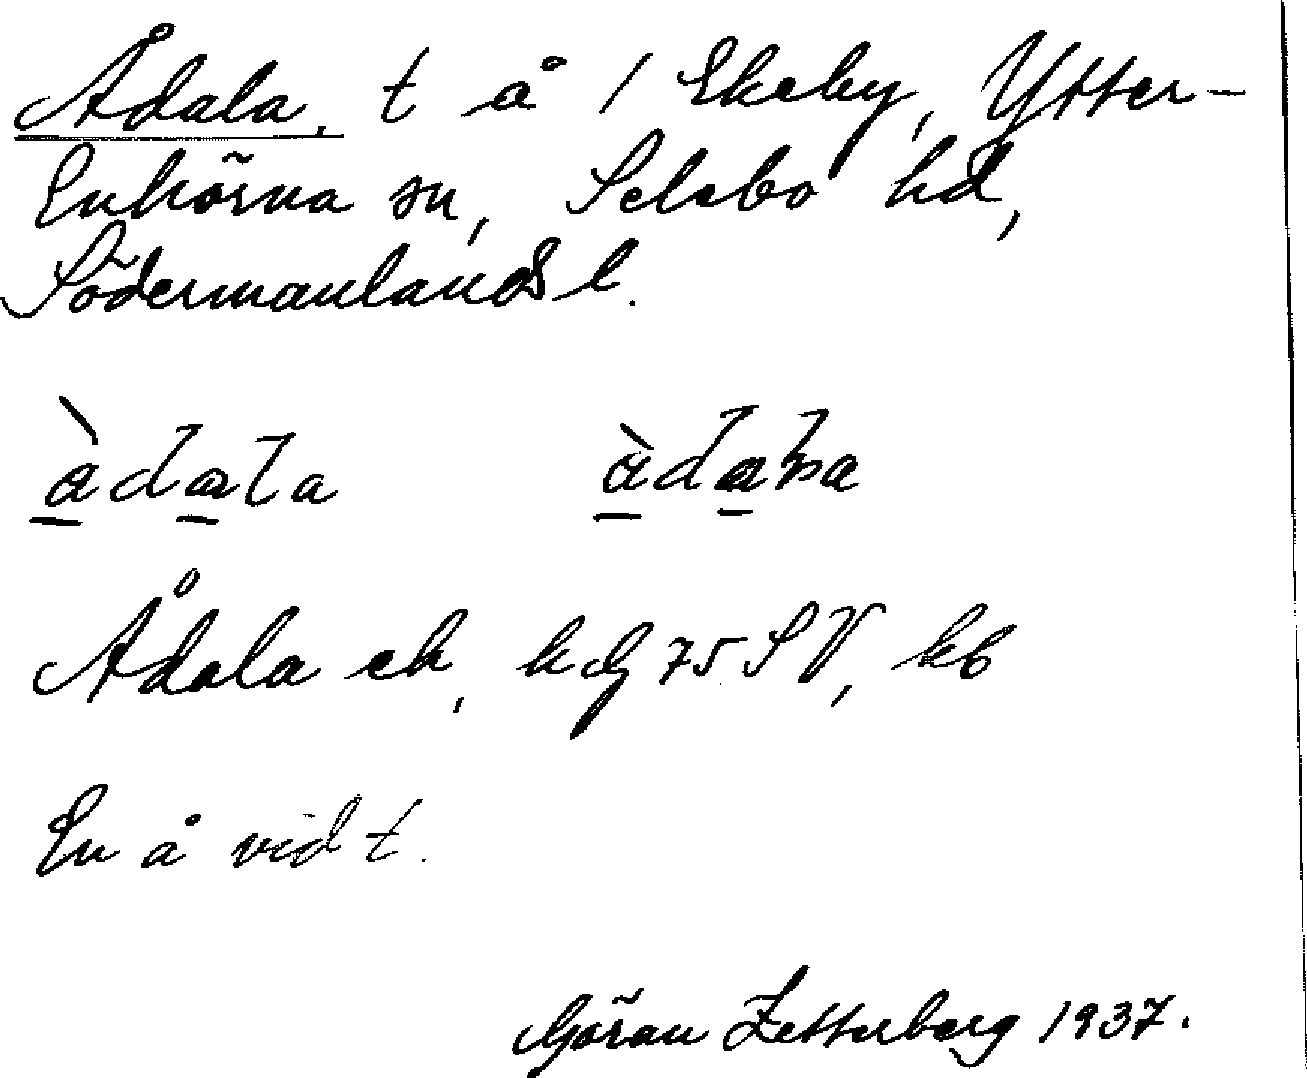 Ådala, t å / Ekeby, Ytter-
Enhörna sn, Selebo hd,
Södermanlands l.
àdala àdaḷna
Ådala ek, kdg 75 SV, kb
En å vid t.
Göran Zetterberg 1937.